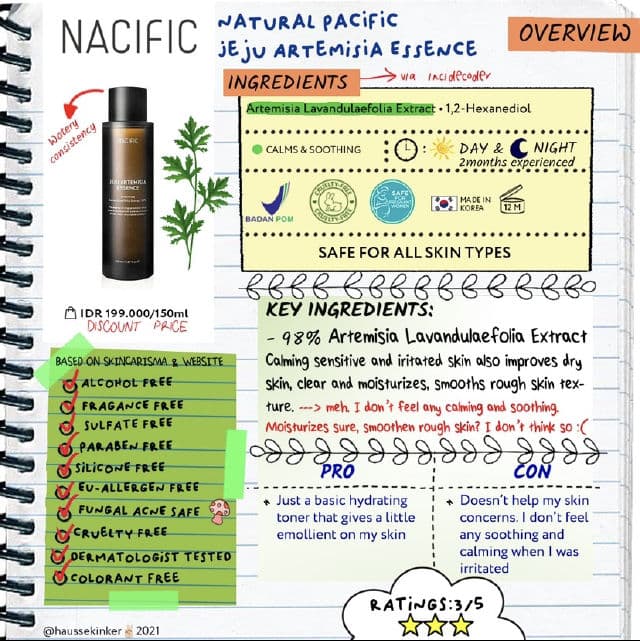 NACIFIC
NATURAL PACIFIC
JEJU ARTEMISIA ESSENCE
OVERVIEW
INGREDIENTS
via incidecoder
Artemisia Lavandulaefolia Extract • 1,2-Hexanediol
CALMS & SOOTHING
DAY & NIGHT
2months experienced
BADAN POM
CRUELTY-FREE
SAFE FOR PREGNANT WOMEN
MADE IN KOREA
12 M
SAFE FOR ALL SKIN TYPES
Watery consistency
JEJU ARTEMISIA
ESSENCE
IDR 199.000/150ml
DISCOUNT PRICE
KEY INGREDIENTS:
- 98% Artemisia Lavandulaefolia Extract
Calming sensitive and iritated skin also improves dry
skin, clear and moisturizes, smooths rough skin tex-
ture. ---> meh. I don't feel any calming and soothing.
Moisturizes sure, smoothen rough skin? I don't think so :(
BASED ON SKINCARISMA & WEBSITE
ALCOHOL FREE
FRAGANCE FREE
SULFATE FREE
PARABEN FREE
SILICONE FREE
EU-ALLERGEN FREE
FUNGAL ACNE SAFE
CRUELTY FREE
DERMATOLOGIST TESTED
COLORANT FREE
PRO
Just a basic hydrating
toner that gives a little
emollient on my skin
CON
Doesn't help my skin
concerns. I don't feel
any soothing and
calming when I was
irritated
RATINGS:3/5
@haussekinker 2021